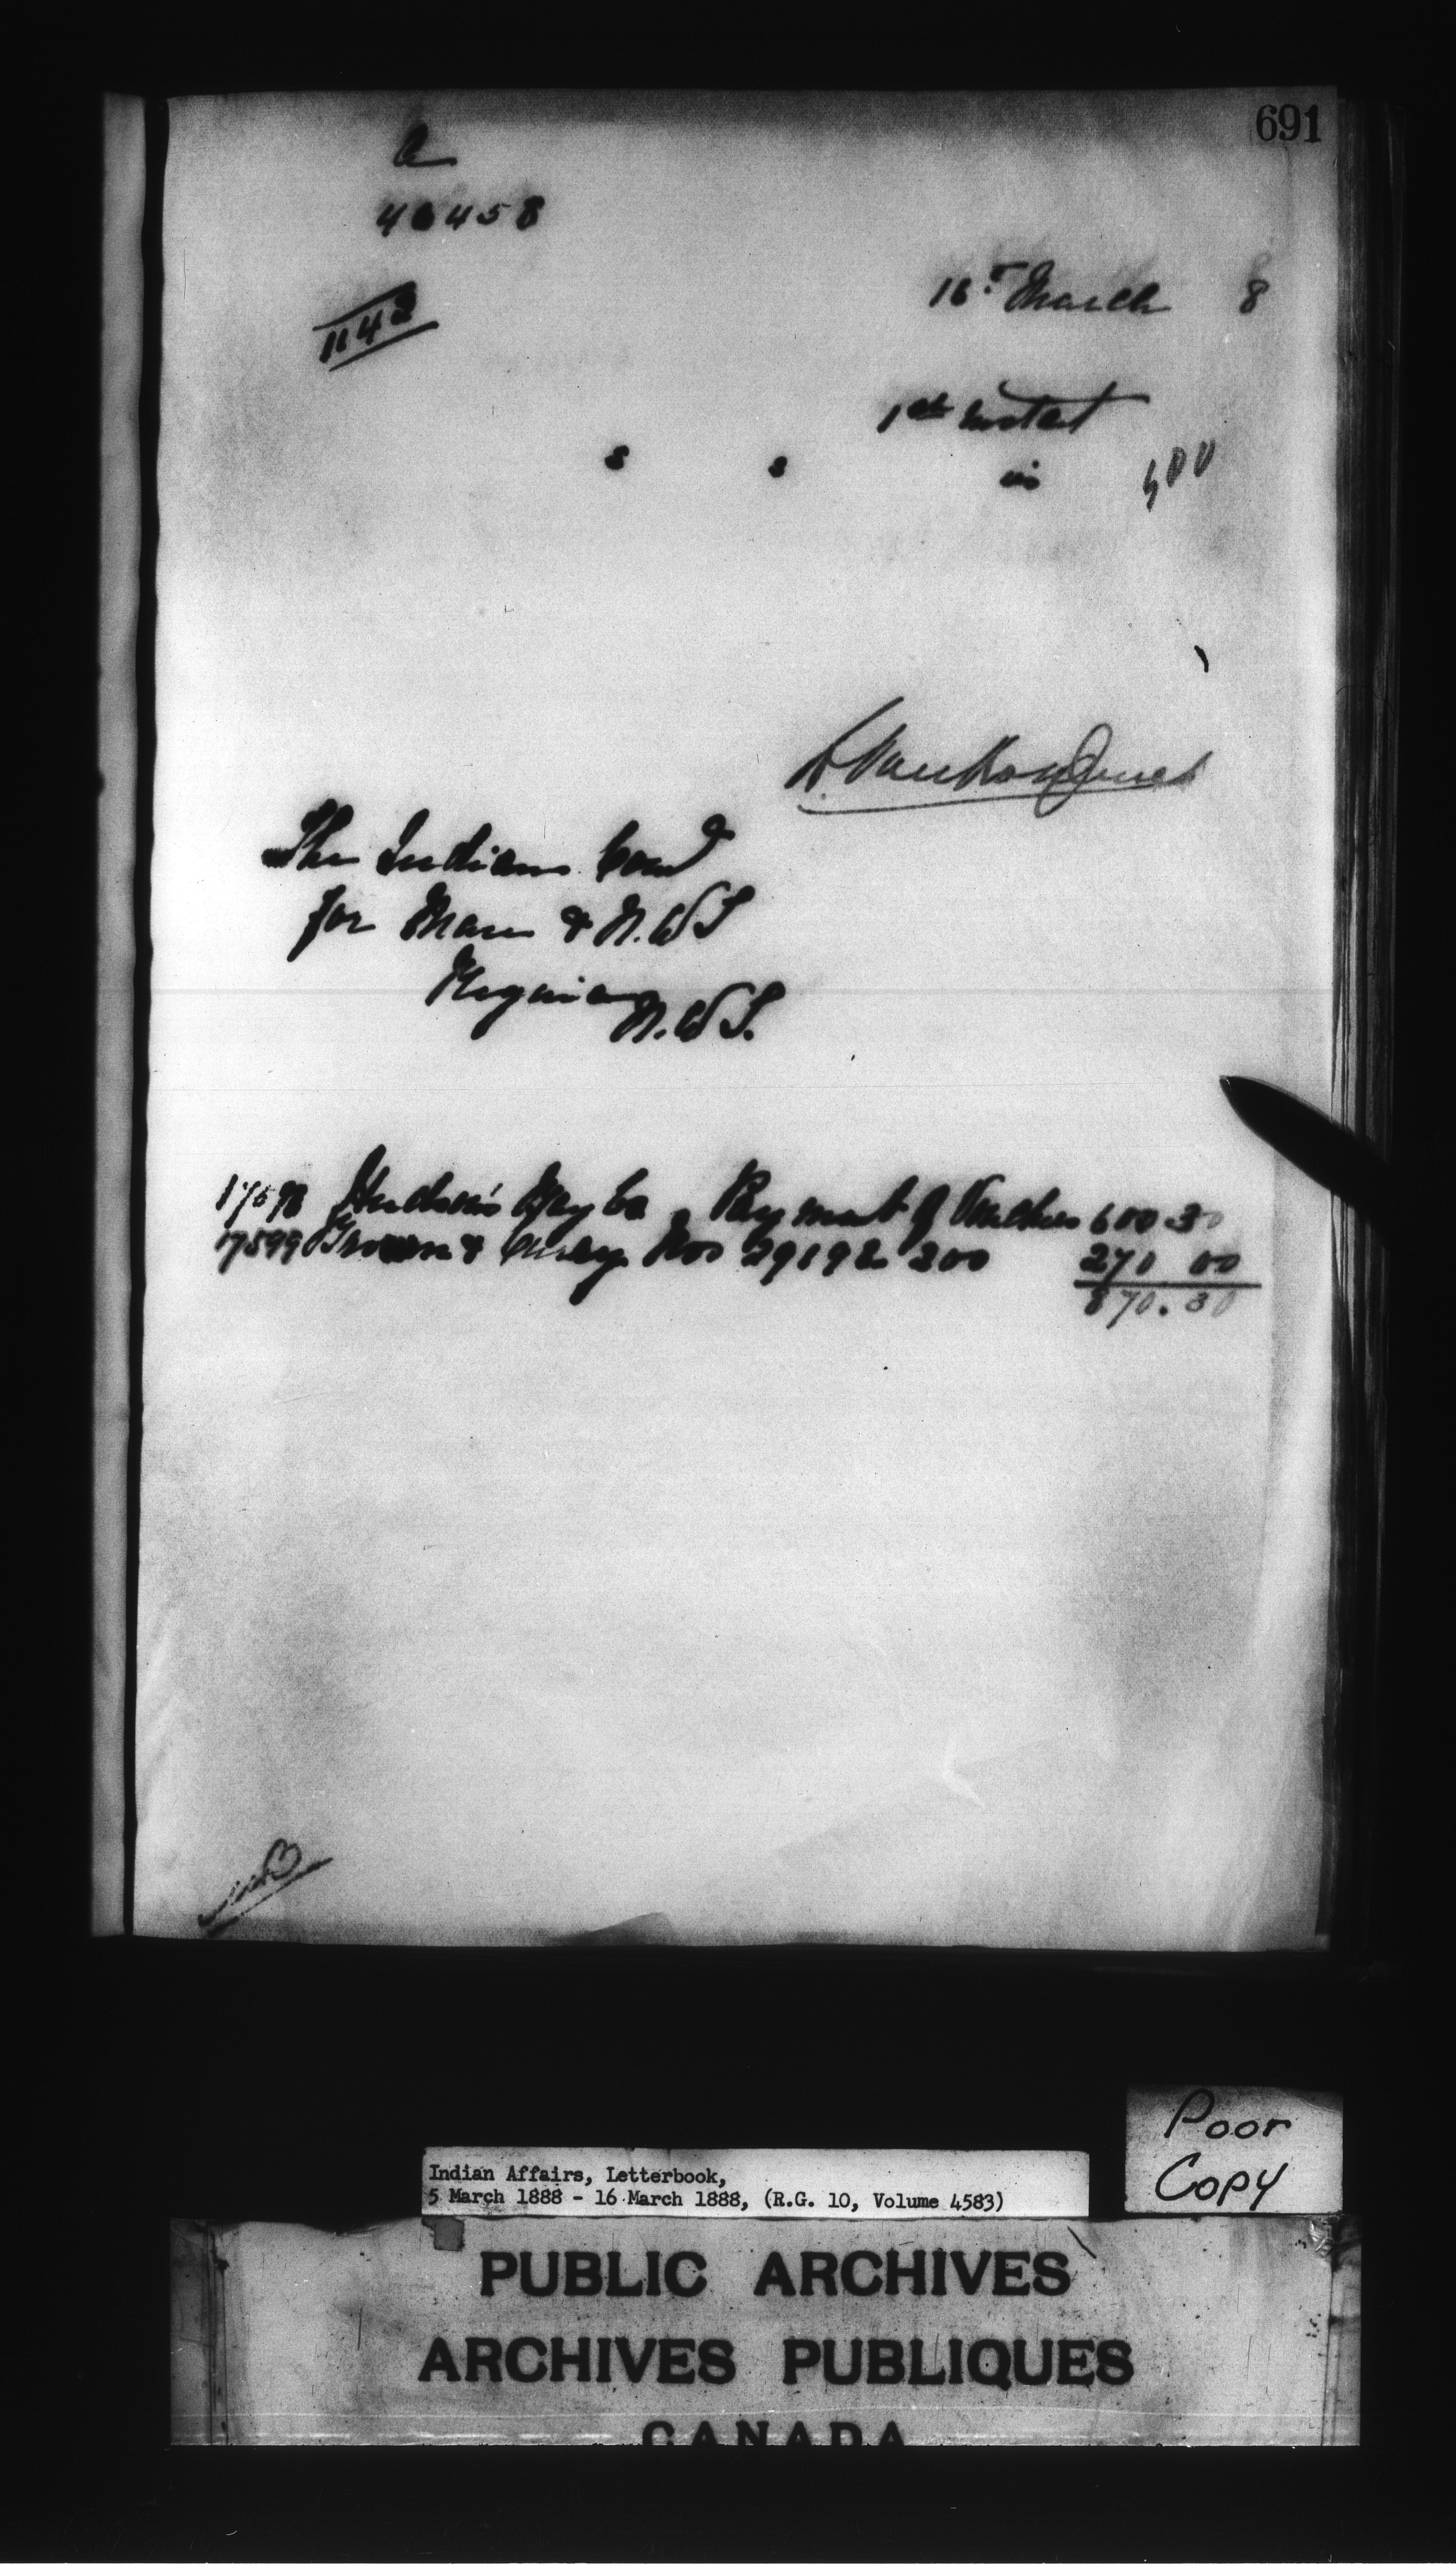 691
a
40458
1143
16th March 8
1st instant
s s is 600
L. VanKoughnet
The Indian Comr
for Man & N.W.T
Regina
N.W.T.
17598 Hudson's Bay Co Payment of Vouchers 600 30
17599 & Nos 2919 & 200 270 00
870.30
Poor
Copy
Indian Affairs, Letterbook,
5 March 1888 - 16 March 1888, (R.G. 10, Volume 4583)
PUBLIC ARCHIVES
ARCHIVES PUBLIQUES
CANADA